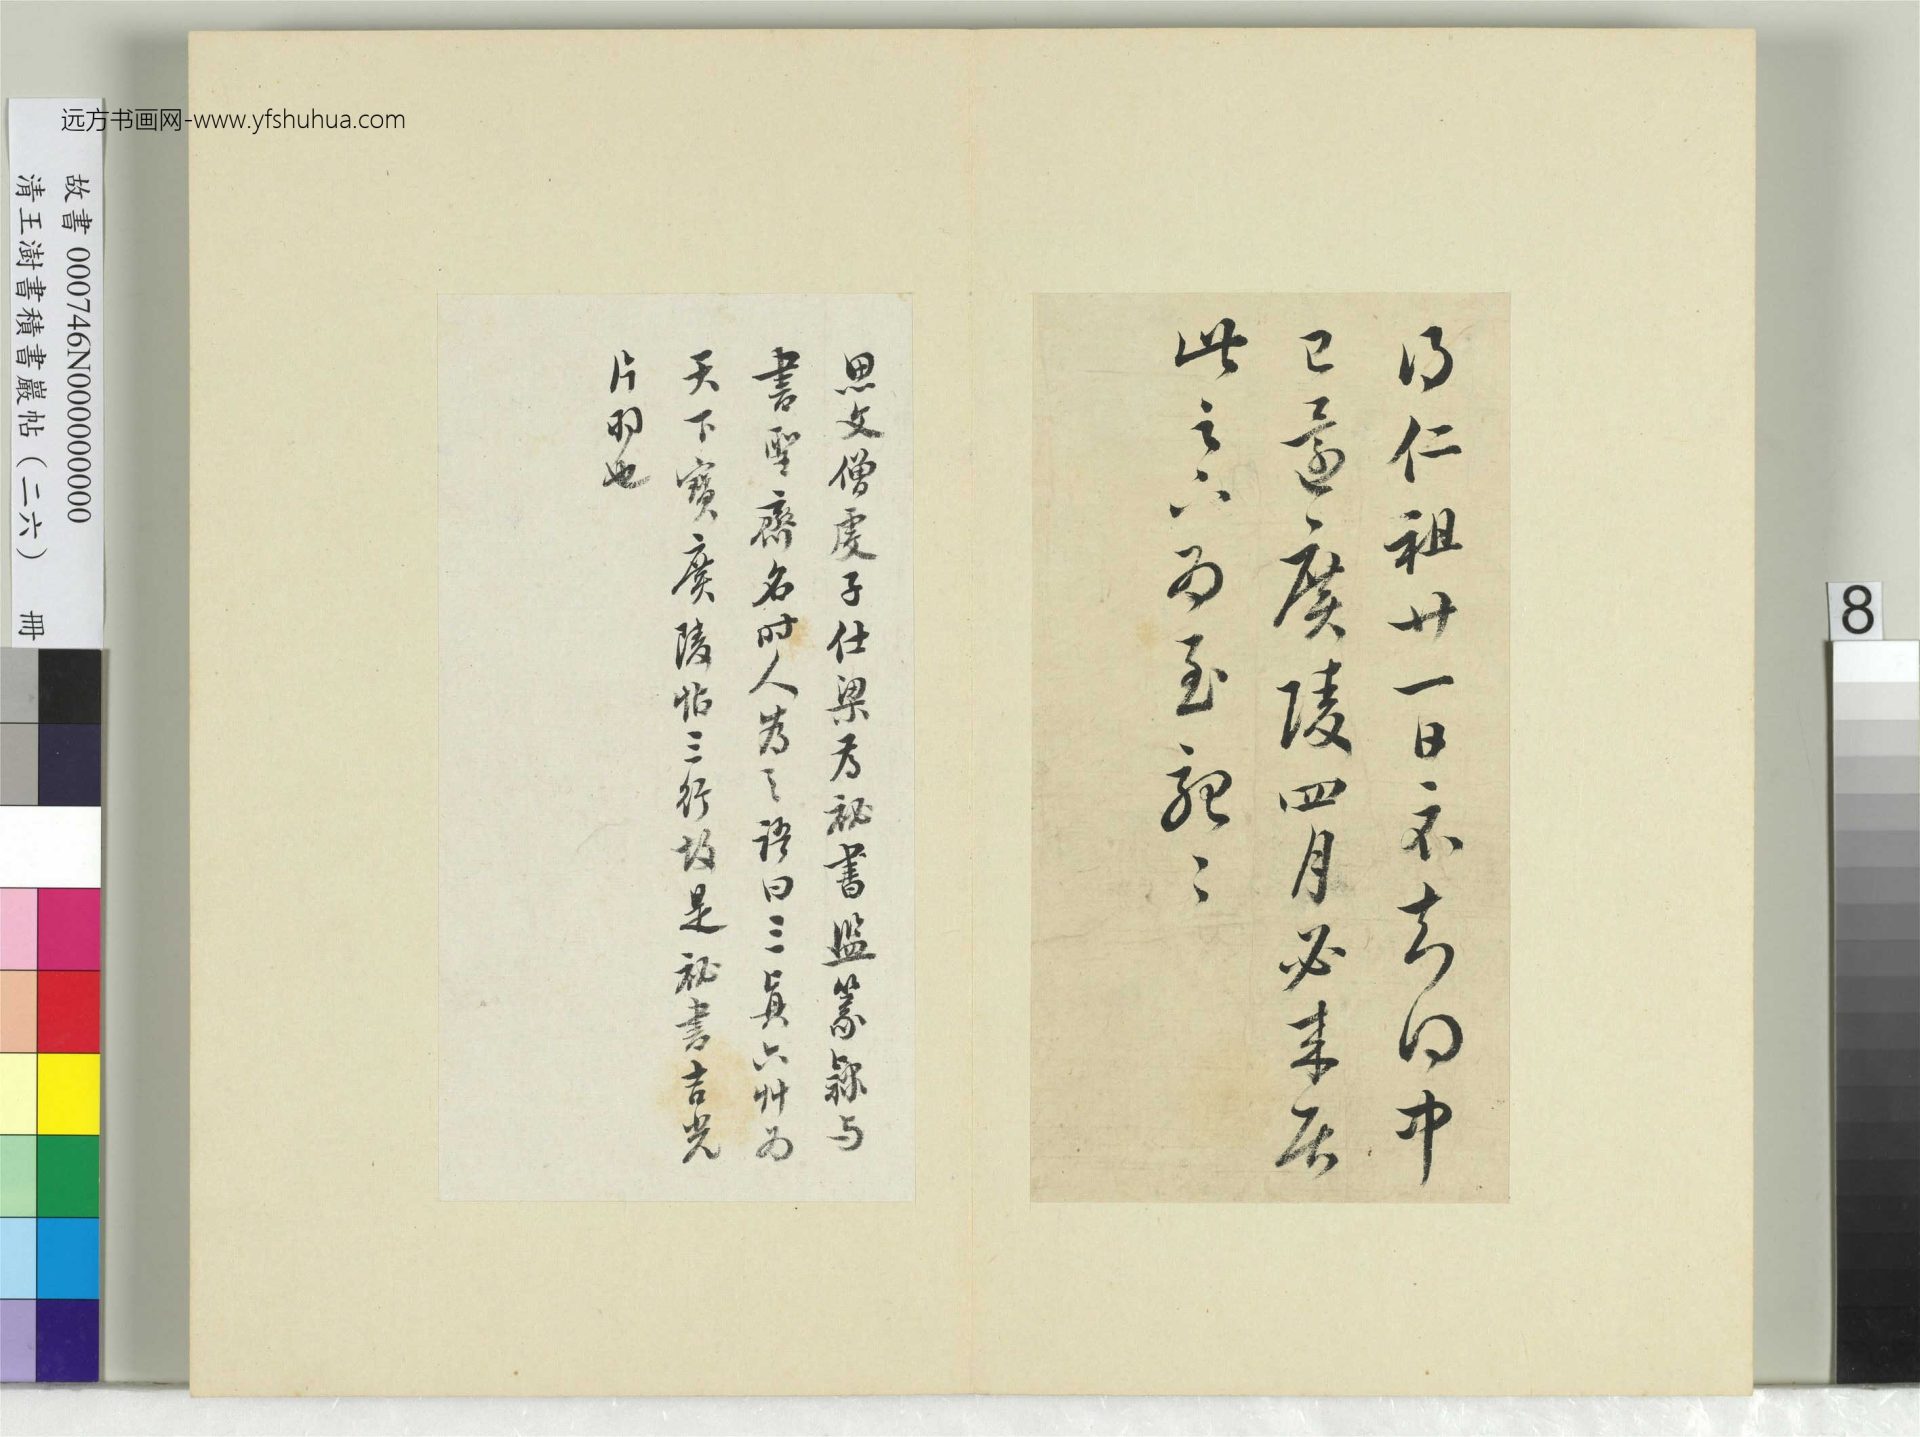 远方书画网-www.yfshuhua.com
故書 000746N000000000
清王澍書積書巖帖（二六） 冊
8
得仁祖廿一日示知問中
已還廣陵四月必來居
此之六為至慰〻
思文僧虔子仕梁為祕書監篆隸与
書聖齊名时人為之語曰三真六艸为
天下寶廣陵帖三行故是祕書吉光
片羽也